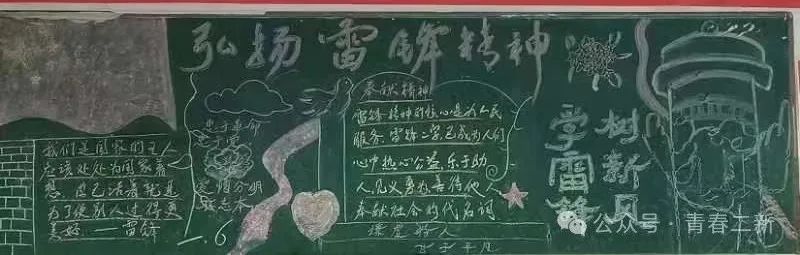 弘扬雷锋精神
我们是国家的主人
应该处处为国家着
想 自己活着就是
为了使别人过得更
美好——雷锋
忠于革命
忠于党
爱憎分明
奉献精神
雷锋精神的核心是为人民
服务,雷锋二字已成为人们
心中热心公益,乐于助
人,见义勇为,善待他人
奉献社会的代名词
学雷锋
树新风
公众号·青春二新